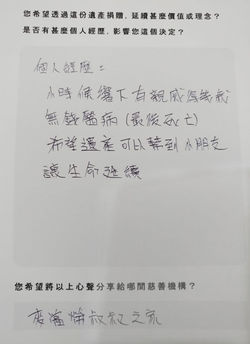 您希望透過這份遺產捐贈，延續甚麼價值或理念？
是否有甚麼個人經歷，影響您這個決定？
個人經歷：
小時候鄉下有親戚得幾歲
無錢醫病（最後死亡）
希望遺產可以幫到小朋友
讓生命延續
您希望將以上心聲分享給哪間慈善機構？
麥當勞叔叔之家